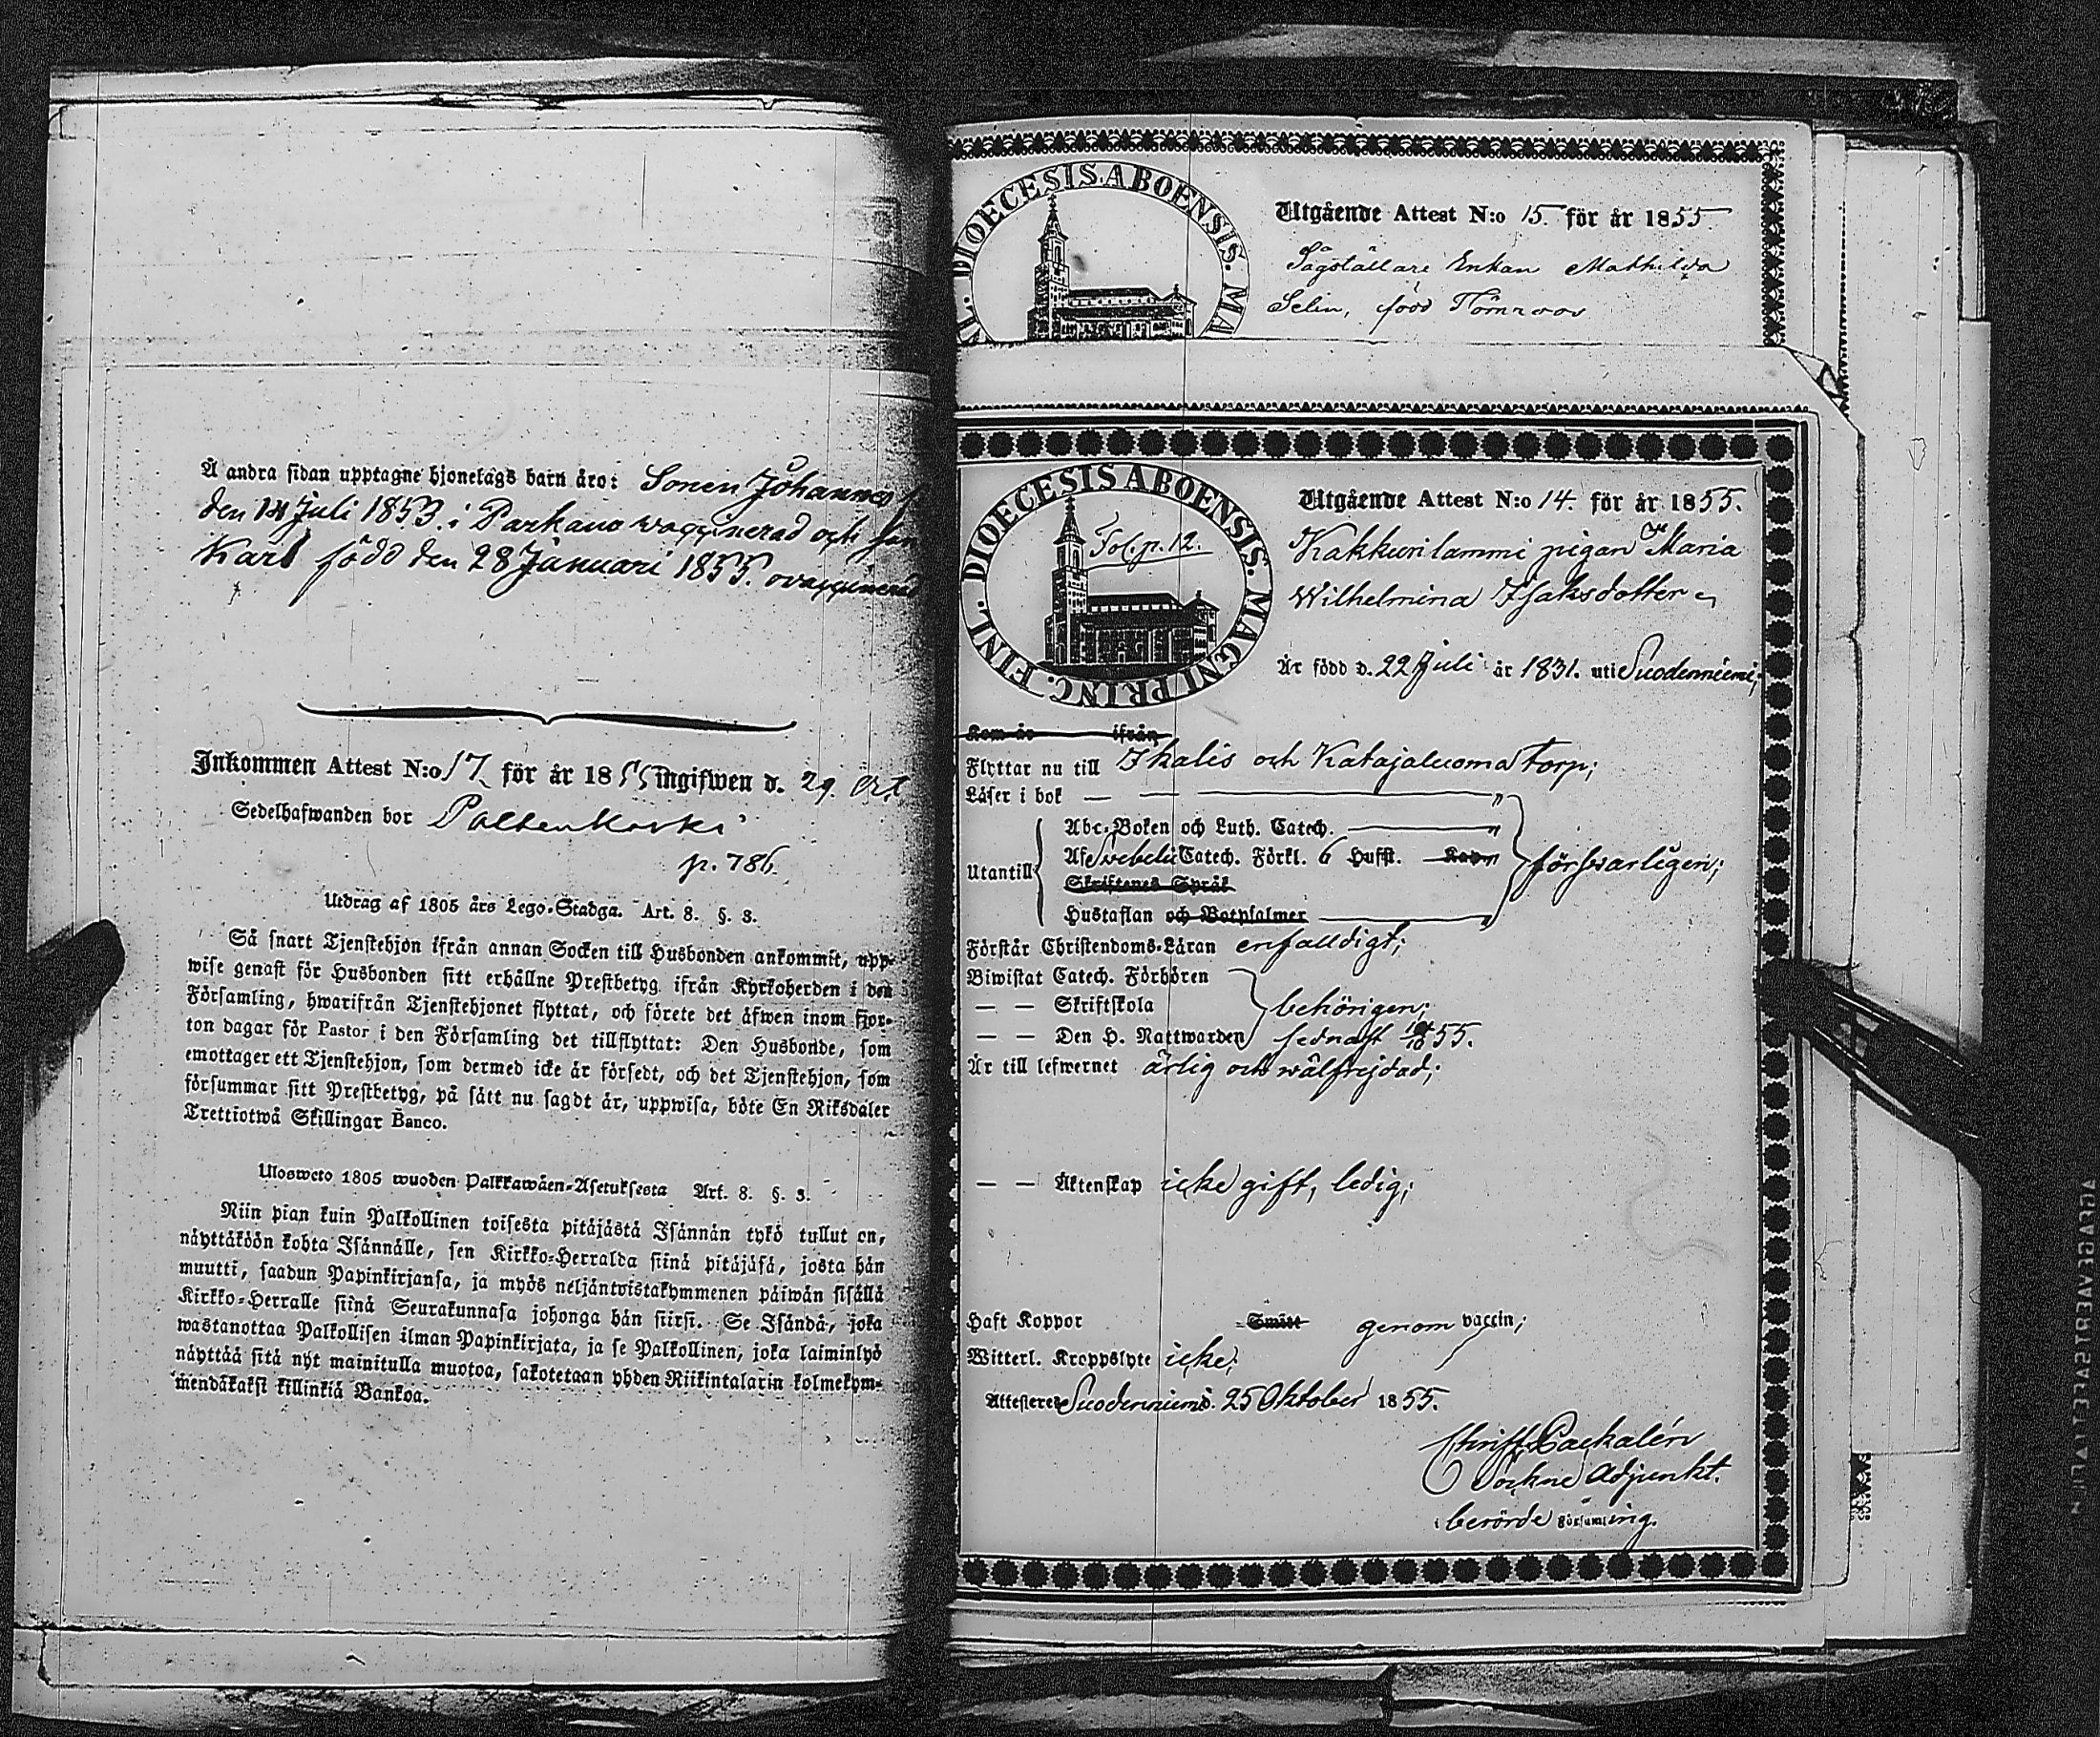 Å andra sidan upptagne hjonelags barn äro: Sonen Johannes
den 14 Juli 1853. i Parkano vaccinerad och son
Karl född den 28 Januari 1855. ovaccinerad
Inkommen Attest N:o 17 för år 1855 ingifwen d. 29. Oct
Sedelhafwanden bor
p. 786.
Utdrag af 1805 års Lego-Stadga. Art. 8. §. 3.
Så snart Tjenstehjon ifrån annan Socken till Husbonden ankommit, upp-
wise genast för Husbonden sitt erhållne Prestbetyg ifrån Kyrkoherden i den
Församling, hwarifrån Tjenstehjonet flyttat, och förete det äfwen inom fjor-
ton dagar för Pastor i den Församling det tillflyttat: Den Husbonde, som
emottager ett Tjenstehjon, som dermed icke är försedt, och det Tjenstehjon, som
försummar sitt Prestbetyg, på sätt nu sagdt är, uppwisa, böte En Riksdaler
Trettiotwå Skillingar Banco.
Ulosweto 1805 wuoden Palkkawäen-Asetuksesta Art. 8. §. 3.
Niin pian kuin Palkollinen toisesta pitäjästä Isännän tykö tullut on,
näyttäköön kohta Isännälle, sen Kirkko-Herralda siinä pitäjäsä, josta hän
muutti, saadun Papinkirjansa, ja myös neljäntoistakymmenen päiwän sisällä
Kirkko-Herralle siinä Seurakunnasa johonga hän siirsi. Se Isändä, joka
wastanottaa Palkollisen ilman Papinkirjata, ja se Palkollinen, joka laiminlyö
näyttää sitä nyt mainitulla muotoa, sakotetaan yhden Riikintalarin kolmekym-
mendäkaksi killinkiä Bankoa.
L. DIOECESIS ABOENSIS. MA
Utgående Attest N:o 15 för år 1855
Sågställare Enkan Mathilda
Selin, född Törnroos
FINL. DIOECESIS ABOENSIS. MAGNI PRINC.
Fol. p. 12.
Utgående Attest N:o 14. för år 1855.
Kakkurilammi pigan Maria
Wilhelmina Isaksdotter
Är född d. 22 Juli år 1831. uti Suodenniemi,
Kom år ifrån
Flyttar nu till Ikalis och Katajaluoma Torp;
Läser i bok — "
Utantill
Abc-Boken och Luth. Catech. — "
Af Svebelii Catech. Förkl. 6 Hufst. Kap.
Skriftenes Språk
Hustaflan och Botpsalmer — "
försvarligen;
Förstår Christendoms-Läran enfalldigt;
Biwistat Catech. Förhören
— — Skriftskola behörigen;
— — Den H. Nattwarden sednast 55.
Är till lefwernet ärlig och wälfrejdad;
— — Äktenskap icke gift, ledig;
Haft Koppor Smått genom vaccin;
Witterl. Kroppslyte icke;
Attesteret Suodenniemi d. 25 Oktober 1855.
Christ. Packalén
Sockne Adjunkt.
i berörde Församling.